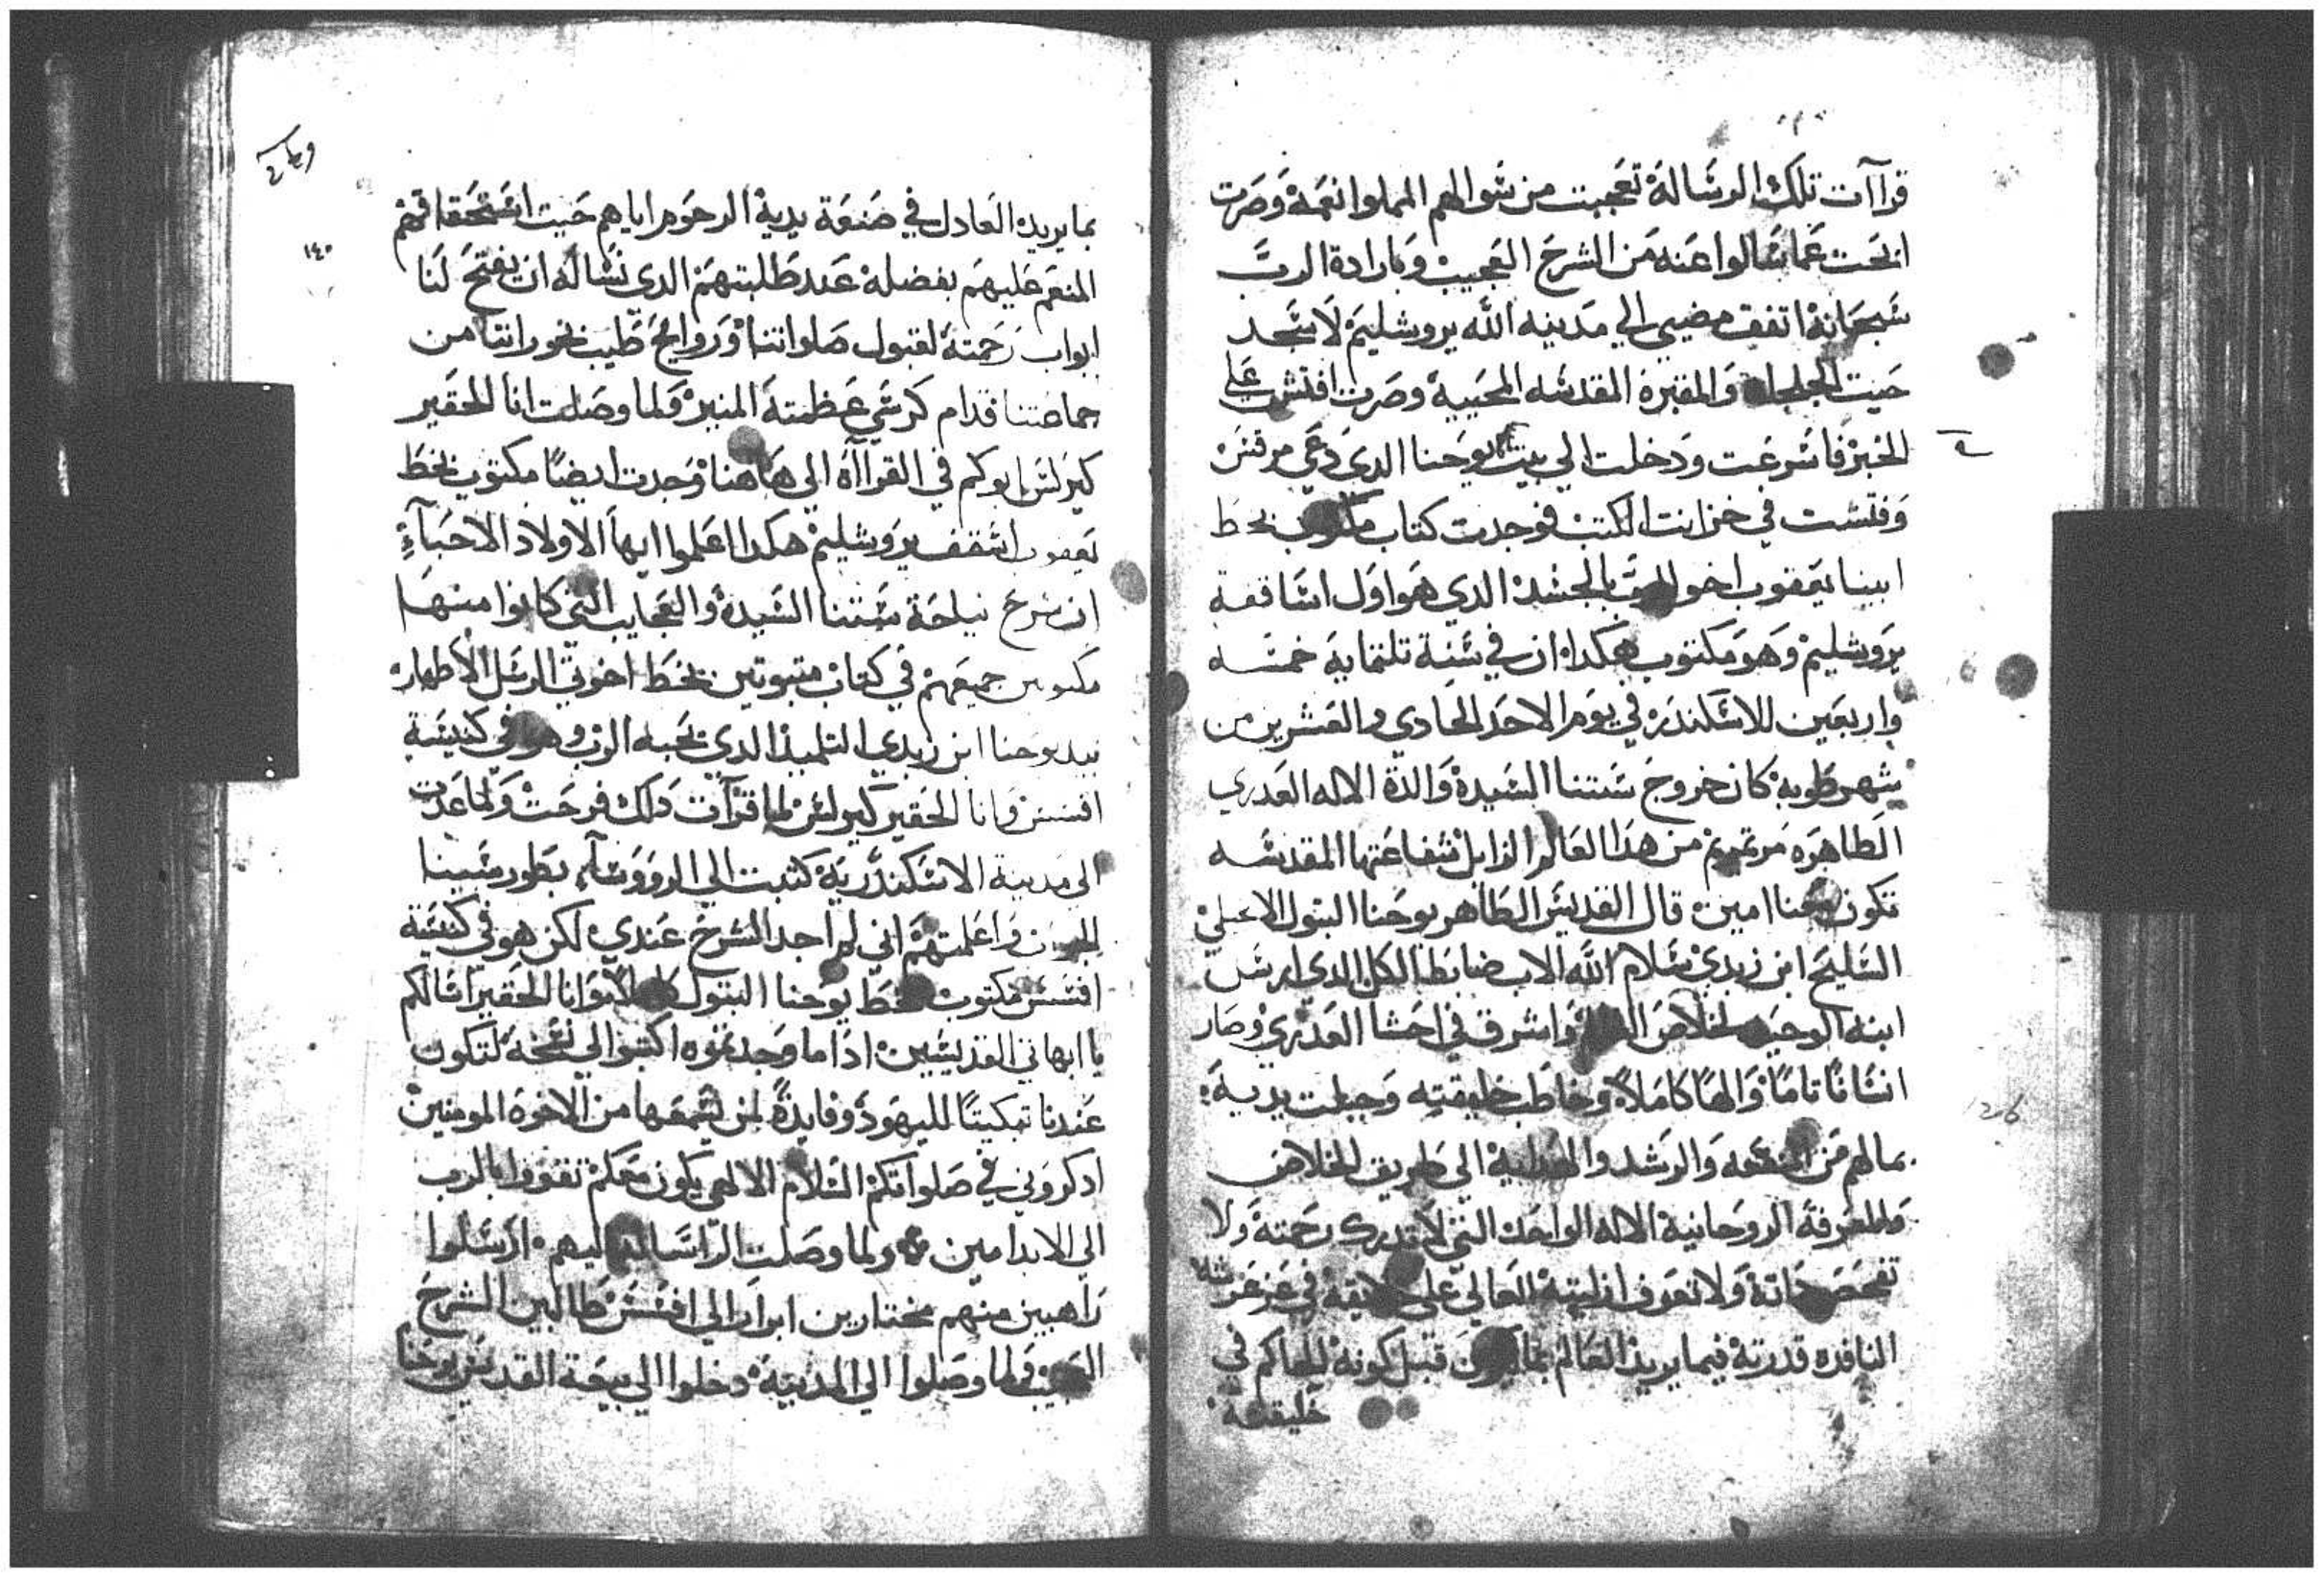 قراآت تلك الرسالة تعجبت من سوالهم المملوا نعمة وصرت
ابحت عما سالوا عنه من الشرح العجيب وبارادة الرب
سبحانة اتفق مضيي الي مدينه الله يروشليم لاسجد
حيت الجلجلة والمقبرة المقدسه المحيية وصرت افتش علي
الخبر فاسرعت ودخلت الي بيت يوحنا الدي دعي مرقس
وفتشت في خزانت الكتب فوجدت كتاب مكتوب بخط
ابينا يعقوب اخو الرب بالجسد الدي هو اول اساقفة
يروشليم وهو مكتوب هكدا ان في سنة تلتماية خمسه
واربعين للاسكندر في يوم الاحد الحادي والعشرين من
شهر طوبه كان خروج ستنا السيدة والدة الاله العدري
الطاهره مرتمريم من هدا العالم الزايل شفاعتها المقدسه
تكون معنا امين قال القديس الطاهر يوحنا البتول الانجيلي
السليح ابن زبدي سلام الله الاب ضابط الكل الدي ارسل
ابنه الوحيد لخلاص واشرق في احشا العدري وصار
انسانا تاما والها كاملا وخاطب خليقته وجبلت يدية
بمالهم من المنفعه والرشد والهداية الي طريق الخلاص
والمعرفة الروحانية الاله الواحد التي لا تدرك رحمتة ولا
تفحص داتة ولا تعرف ازليتة العالي علي خليقة في عز عرشه
النافده قدرتة فيما يريد العالم بما يكون قبل كونه الحاكم في
خليقته
١٤٠
بما يريد العادل في صنعة يدية الرحوم اياهم حيت استحقاقهم
المنعم عليهم بفضلة عند طلبتهم الدي نساله ان يفتح لنا
ابواب رحمتة لقبول صلواتنا وروايح طيب بخوراتنا من
جماعتنا قدام كرسي عظمتة المنير ولما وصلت انا الحقير
كيرلس ابوكم في القراآة الي هاهنا وجدت ايضا مكتوب بخط
يعقوب اسقف يروشليم هكدا اعلموا ايها الاولاد الاحبآء
ان شرح نياحة ستنا السيدة والعجايب التي كانوا منها
مكتوبين جميعهم في كتاب متبوتين بخط اخوتي الرسل الاطهار
بيد يوحنا ابن زبدي التلميد الدي يحبه الرب وهو في كنيسة
افسس وانا الحقير كيرلس لما قرآت دلك فرحت ولما عدت
الي مدينة الاسكندرية كتبت الي الرووسآء بطور سينا
واعلمتهم اني لم اجد الشرح عندي لكن هو في كنيسة
افسس مكتوب بخط يوحنا البتول وانا الحقير اسالكم
يا ابهاتي القديسين ادا ما وجدتموه اكتبوا لي نسخة لتكون
عندنا تبكيتا لليهود وفايدة لمن يسمعها من الاخوة المومنين
ادكروني في صلواتكم السلام الالهي يكون معكم تقووا بالرب
الي الابد امين ولما وصلت الراسالة اليهم ارسلوا
راهبين منهم مختارين ابرار الي افسس طالبين الشرح
العجيب فلما وصلوا الي المدينة دخلوا الي بيعة القديس يوحنا